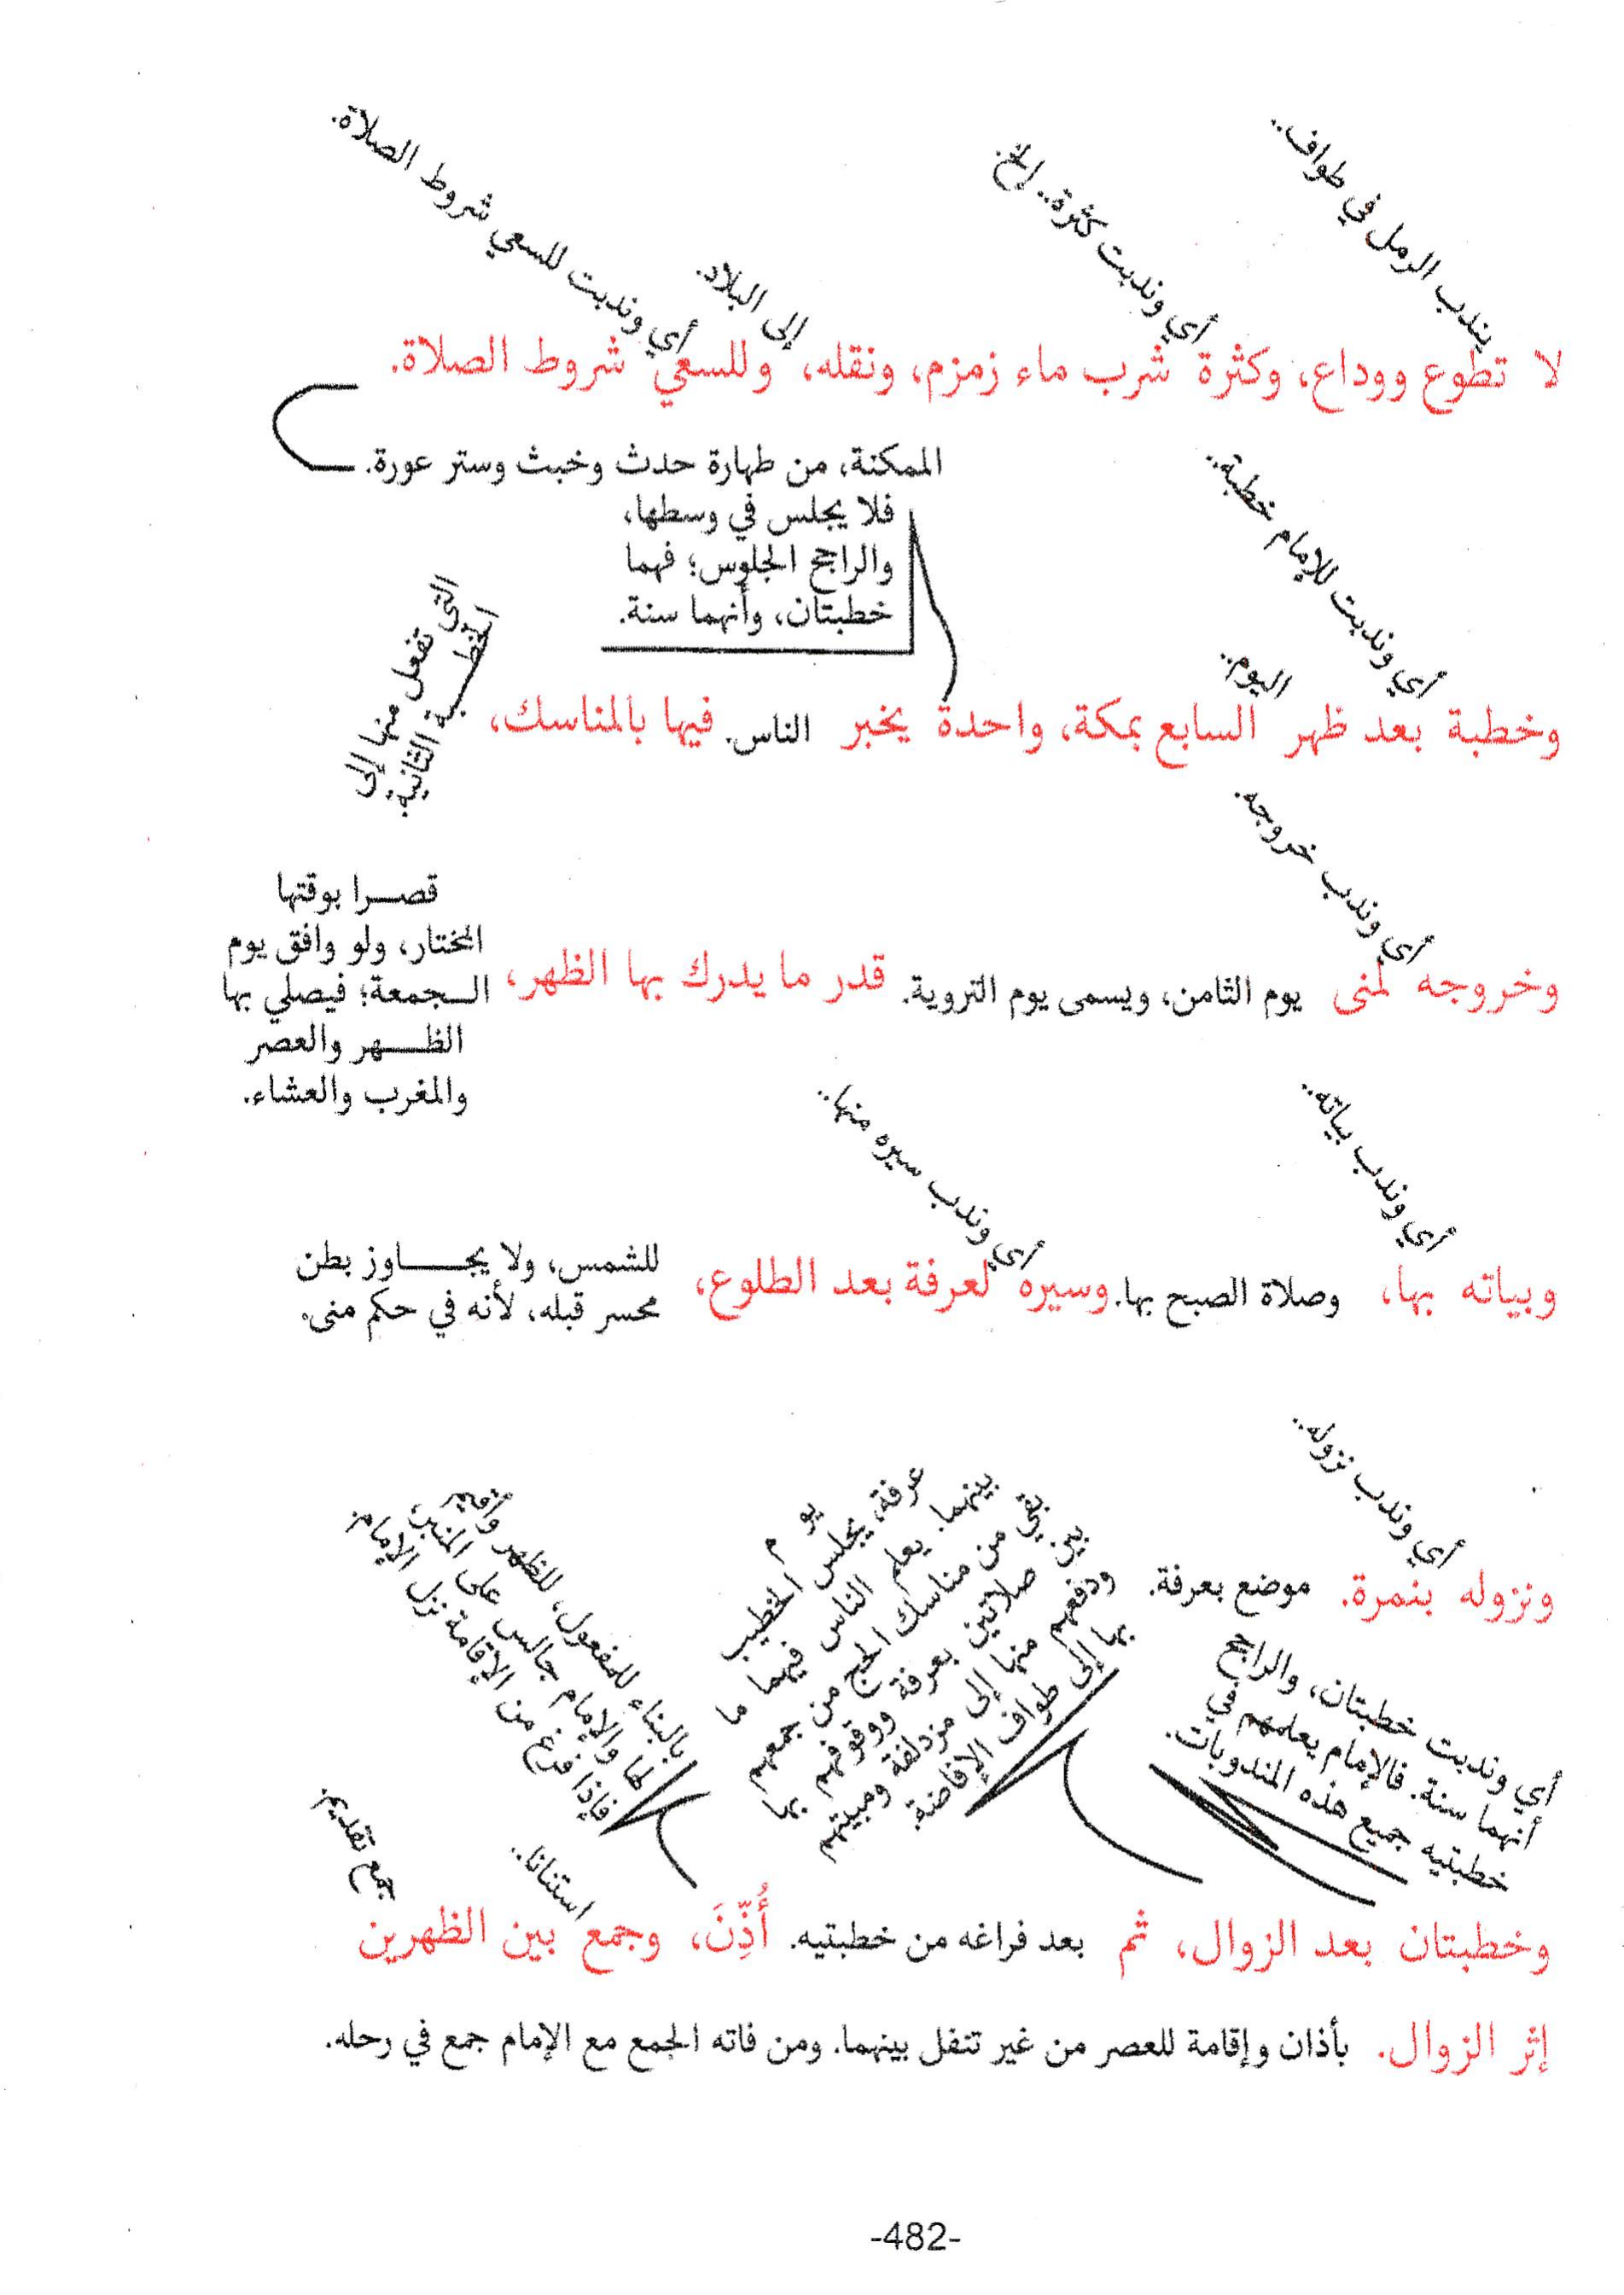 يندب الرمل في طواف..
أي وندبت كثرة.. إلخ.
إلى البلاد.
أي وندبت للسعي شروط الصلاة.
لا تطوع ووداع، وكثرة شرب ماء زمزم، ونقله، وللسعي شروط الصلاة.
الممكنة، من طهارة حدث وخبث وستر عورة.
فلا يجلس في وسطها،
والراجح الجلوس؛ فهما
خطبتان، وأنهما سنة.
أي وندبت للإمام خطبة..
اليوم..
وخطبة بعد ظهر السابع بمكة، واحدة يخبر الناس. فيها بالمناسك،
التي تفعل منها إلى
الخطبة الثانية.
أي وندب خروجه.
وخروجه لمنى يوم الثامن، ويسمى يوم التروية. قدر ما يدرك بها الظهر،
قصرا بوقتها
المختار، ولو وافق يوم
الجمعة؛ فيصلي بها
الظهر والعصر
والمغرب والعشاء.
أي وندب بياته..
أي وندب سيره منها..
وبياته بها، وصلاة الصبح بها. وسيره لعرفة بعد الطلوع،
للشمس، ولا يجاوز بطن
محسر قبله، لأنه في حكم منى.
أي وندب نزوله..
ونزوله بنمرة. موضع بعرفة.
أي وندبت خطبتان، والراجح
أنهما سنة. فالإمام يعلمهم في
خطبتيه جميع هذه المندوبات.
يوم
عرفة، يجلس الخطيب
بينهما. يعلم الناس فيهما ما
من مناسك الحج من جمعهم
صلاتين بعرفة ووقوفهم
ودفعهم منها إلى مزدلفة ومبيتهم
بها إلى طواف الإفاضة.
بالبناء للمفعول، للظهر وأقيم
لها والإمام جالس على المنبر،
فإذا فرغ من الإقامة نزل الإمام.
استنانا..
جمع تقديم.
وخطبتان بعد الزوال، ثم بعد فراغه من خطبتيه. أُذِّنَ، وجمع بين الظهرين
إثر الزوال. بأذان وإقامة للعصر من غير تنفل بينهما. ومن فاته الجمع مع الإمام جمع في رحله.
-482-